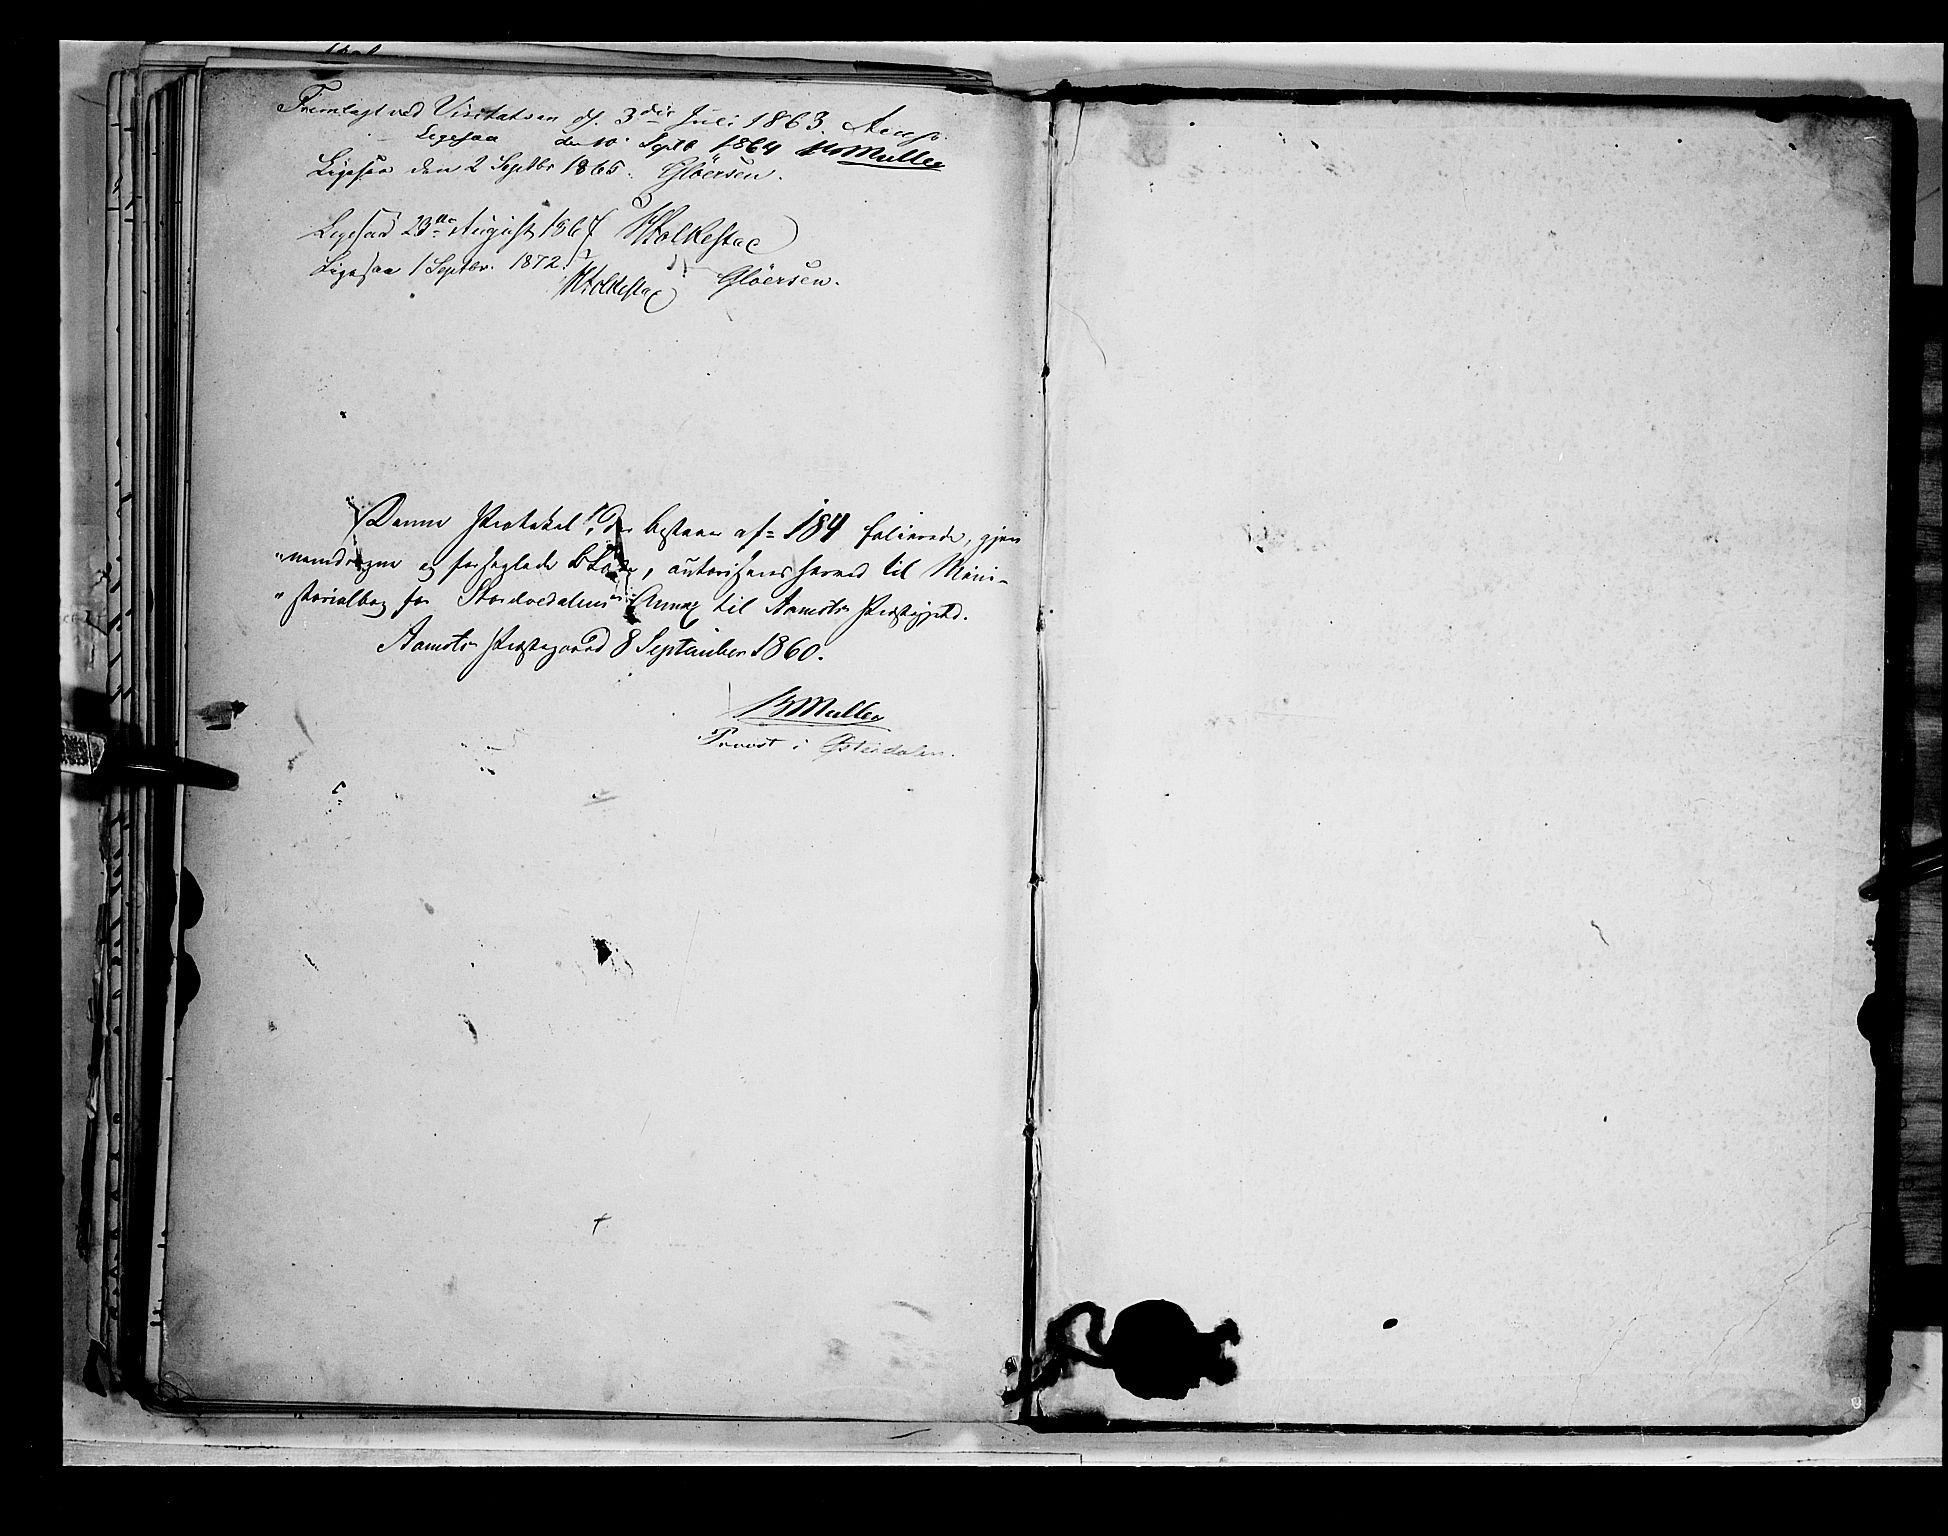 Fremlagt ved Visitatsen d. 3die Juli 1863. Arup.
Ligesaa den 10. Septb 1864 Müller
Ligesaa den 2 Septbr 1865. Gløersen.
Ligesaa 23de August 1867 Folkestad
Ligesaa 1 Septbr. 1872.
Folkestad Gløersen.
Denne Protokol, der bestaar af 184 folierede, gjen-
nemdragne og forseglede Blade, autoriseres herved til Mini-
sterialbog for Storelvedalens Annex til Aamots Præstegjeld.
Aamots Præstegaard 8 September 1860.
Müller
Provst i Østerdalen.